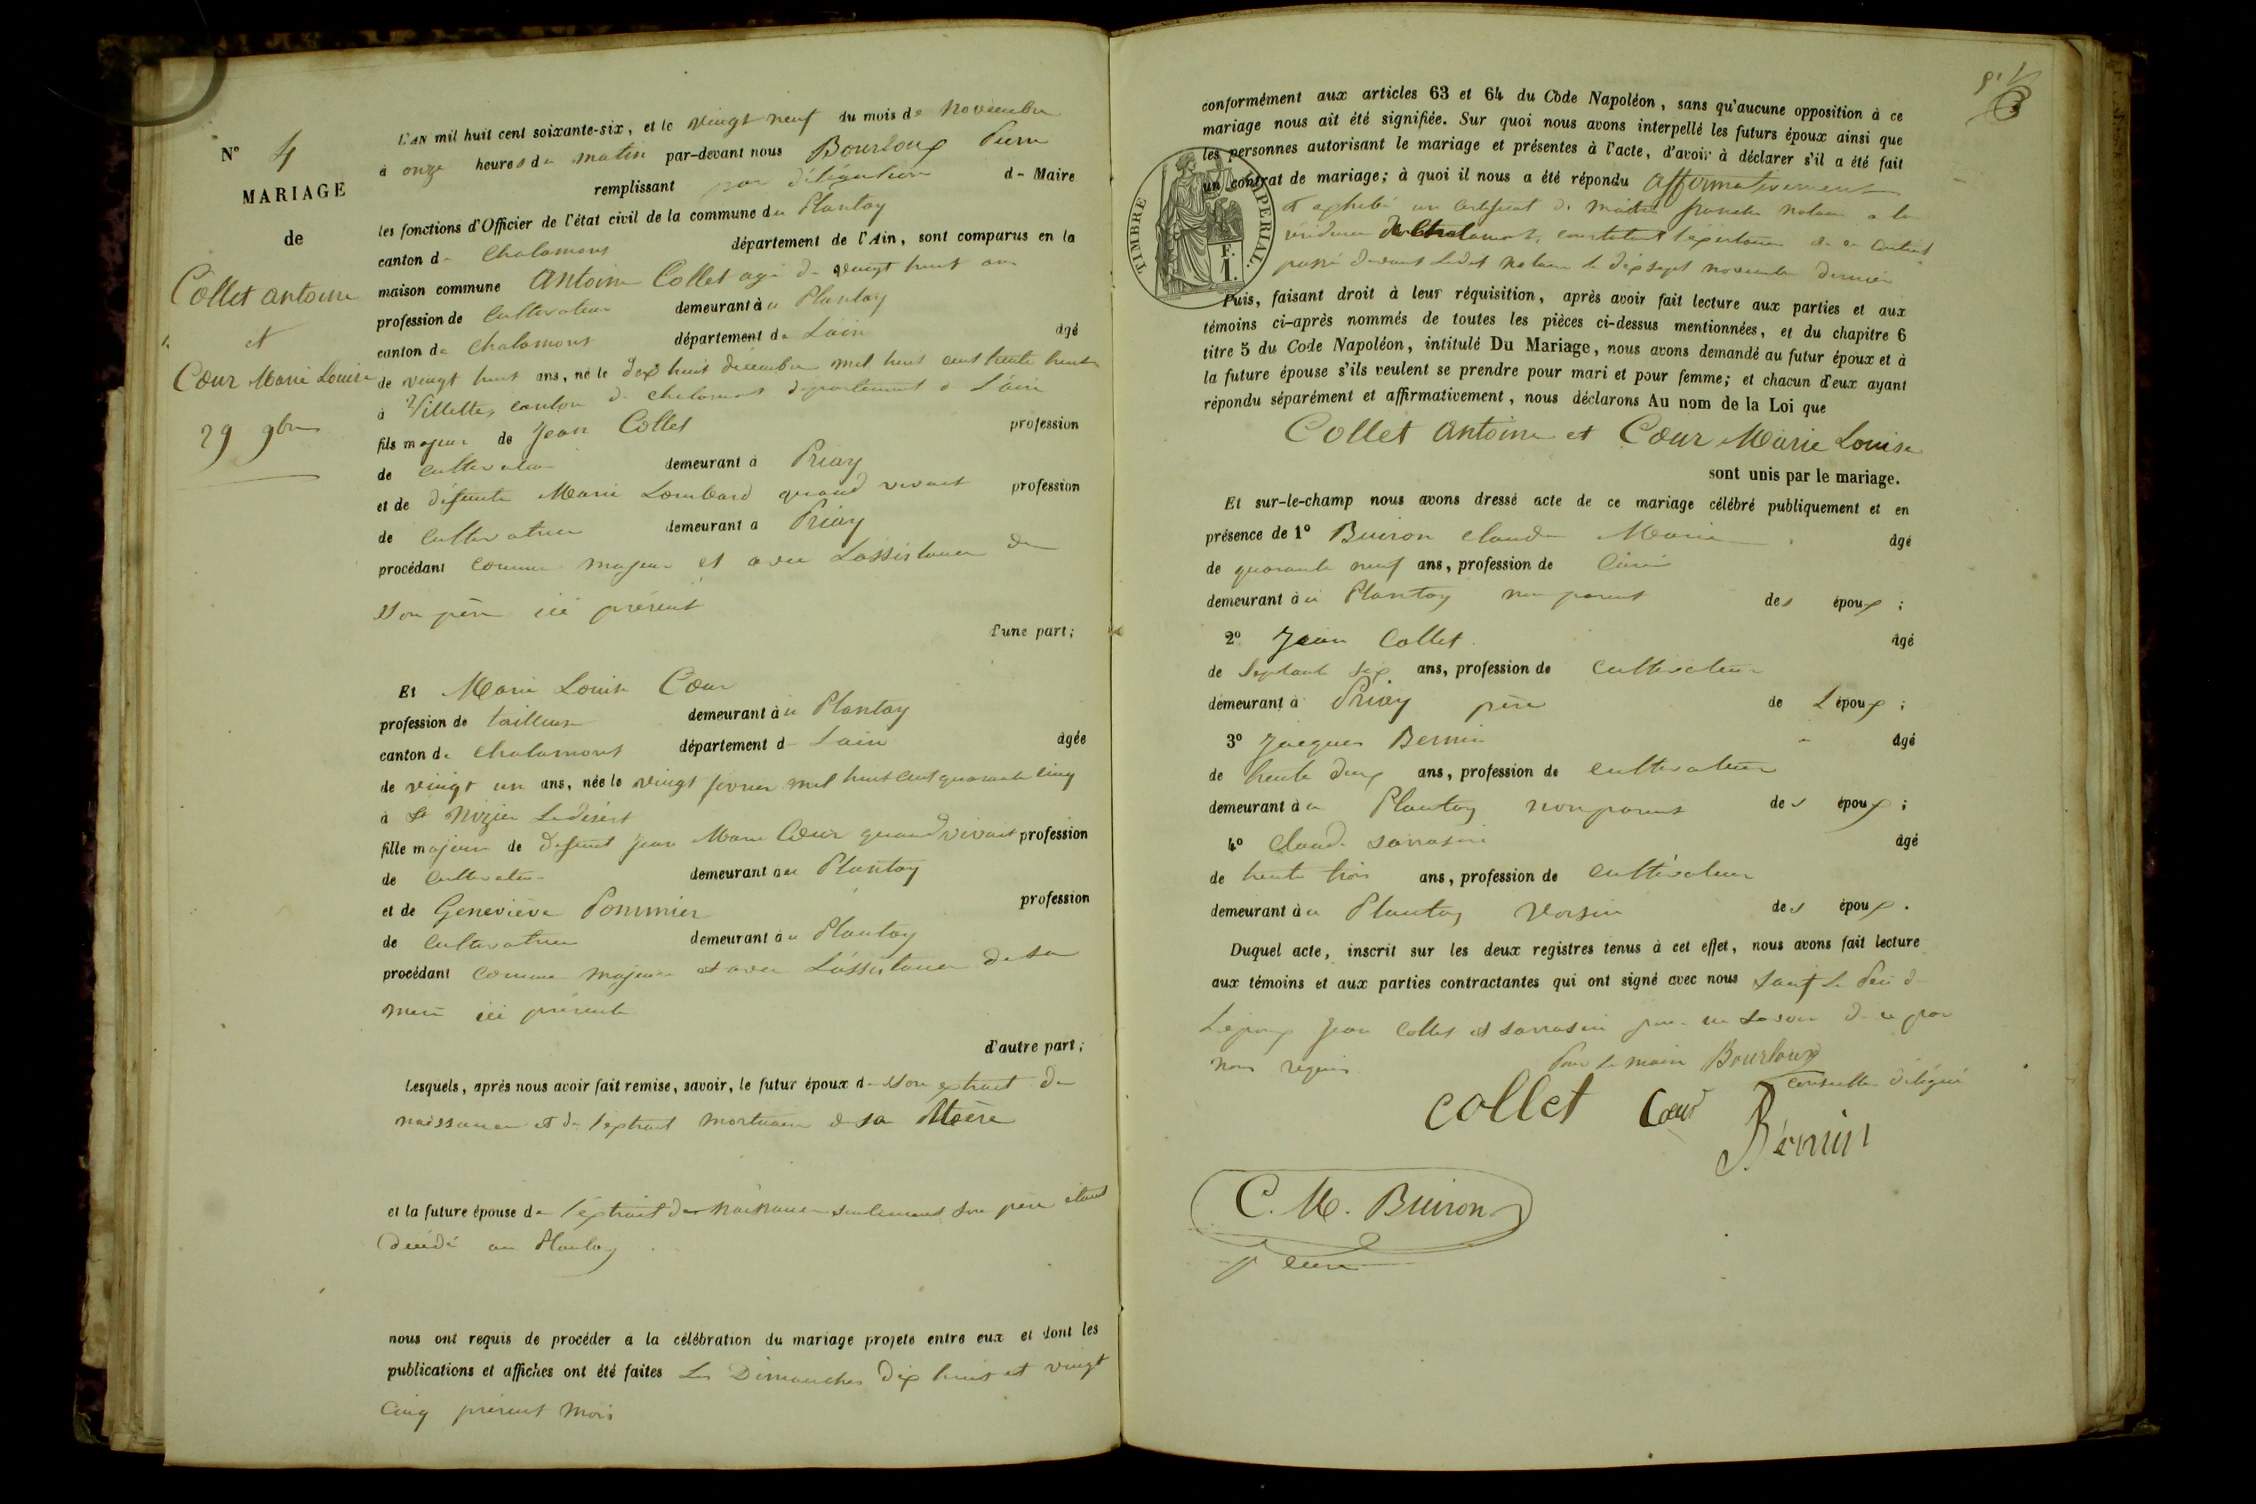 N° 4
MARIAGE
de
Collet antoine
et
Cœur Marie Louise
29 9bre
L'AN mil huit cent soixante-six, et le vingt neuf du mois de Novembre
à onze heures du matin par-devant nous Bourloux Pierre
remplissant par délégation d- Maire
les fonctions d'Officier de l'état civil de la commune du Plantay
canton de Chalamont département de l'Ain, sont comparus en la
maison commune Antoine Collet agé de vingt huit ans
profession de Cultivateur demeurant à u Plantay
canton de Chalamont département de Lain âgé
de vingt huit ans, né le dix huit décembre mil huit cent trente huit
à Villette, canton de Chalamont département de L'ain
fils majeur de Jean Collet profession
de cultivateur demeurant à Priay
et de défunte Marie Lombard quand vivait profession
de cultivatrice demeurant à Priay
procédant comme majeur et avec Lassistance de
son père ici présent
d'une part;
Et Marie Louise Cœur
profession de tailleuse demeurant à u Plantay
canton de Chalamont département d- Lain âgée
de vingt un ans, née le vingt février mil huit cent quarante cinq
à St Nizier Ledésert
fille majeure de defunt Jean Marie Cœur quand vivait profession
de Cultivateur demeurant au Plantay
et de Geneviève Pommier profession
de Cultivatrice demeurant à u Plantay
procédant comme majeure et avec L'assistance de sa
mère ici présente
d'autre part;
Lesquels, après nous avoir fait remise, savoir, le futur époux de son extrait de
naissance et de l'extrait mortuaire de sa Mère
et la future épouse de l'extrait de naissance seulement son père étant
décédé au Plantay
nous ont requis de procéder à la célébration du mariage projeté entre eux et dont les
publications et affiches ont été faites Les Dimanches dix huit et vingt
cinq présent mois
conformément aux articles 63 et 64 du Code Napoléon, sans qu'aucune opposition à ce
mariage nous ait été signifiée. Sur quoi nous avons interpellé les futurs époux ainsi que
les personnes autorisant le mariage et présentes à l'acte, d'avoir à déclarer s'il a été fait
un contrat de mariage; à quoi il nous a été répondu affirmativement
et exhibé un certificat de maitre notaire a la
résidence de Chalamont, constatant l'existence de ce contrat
passé devant ledit notaire le dix sept novembre dernier
TIMBRE IMPERIAL.
F.
1.
Puis, faisant droit à leur réquisition, après avoir fait lecture aux parties et aux
témoins ci-après nommés de toutes les pièces ci-dessus mentionnées, et du chapitre 6
titre 5 du Code Napoléon, intitulé Du Mariage, nous avons demandé au futur époux et à
la future épouse s'ils veulent se prendre pour mari et pour femme; et chacun d'eux ayant
répondu séparément et affirmativement, nous déclarons Au nom de la Loi que
Collet Antoine et Cœur Marie Louise
sont unis par le mariage.
Et sur-le-champ nous avons dressé acte de ce mariage célébré publiquement et en
présence de 1° Buiron claude Marie âgé
de quarante neuf ans, profession de Curé
demeurant à u Plantay non parent des époux;
2° Jean Collet âgé
de septante six ans, profession de cultivateur
demeurant à Priay père de L'époux;
3° Jacques Bernin âgé
de trente deux ans, profession de cultivateur
demeurant à u Plantay non parent des époux;
4° Claude Sarrasin âgé
de trente trois ans, profession de Cultivateur
demeurant à u Plantay Voisin des époux.
Duquel acte, inscrit sur les deux registres tenus à cet effet, nous avons fait lecture
aux témoins et aux parties contractantes qui ont signé avec nous sauf le Père de
L'époux Jean Collet et Sarrasin pour ne savoir de ce par
nous requis
Pour le maire Bourloux
Conseiller délégué
collet Cœur
Bernin
C. M. Buiron
Curé